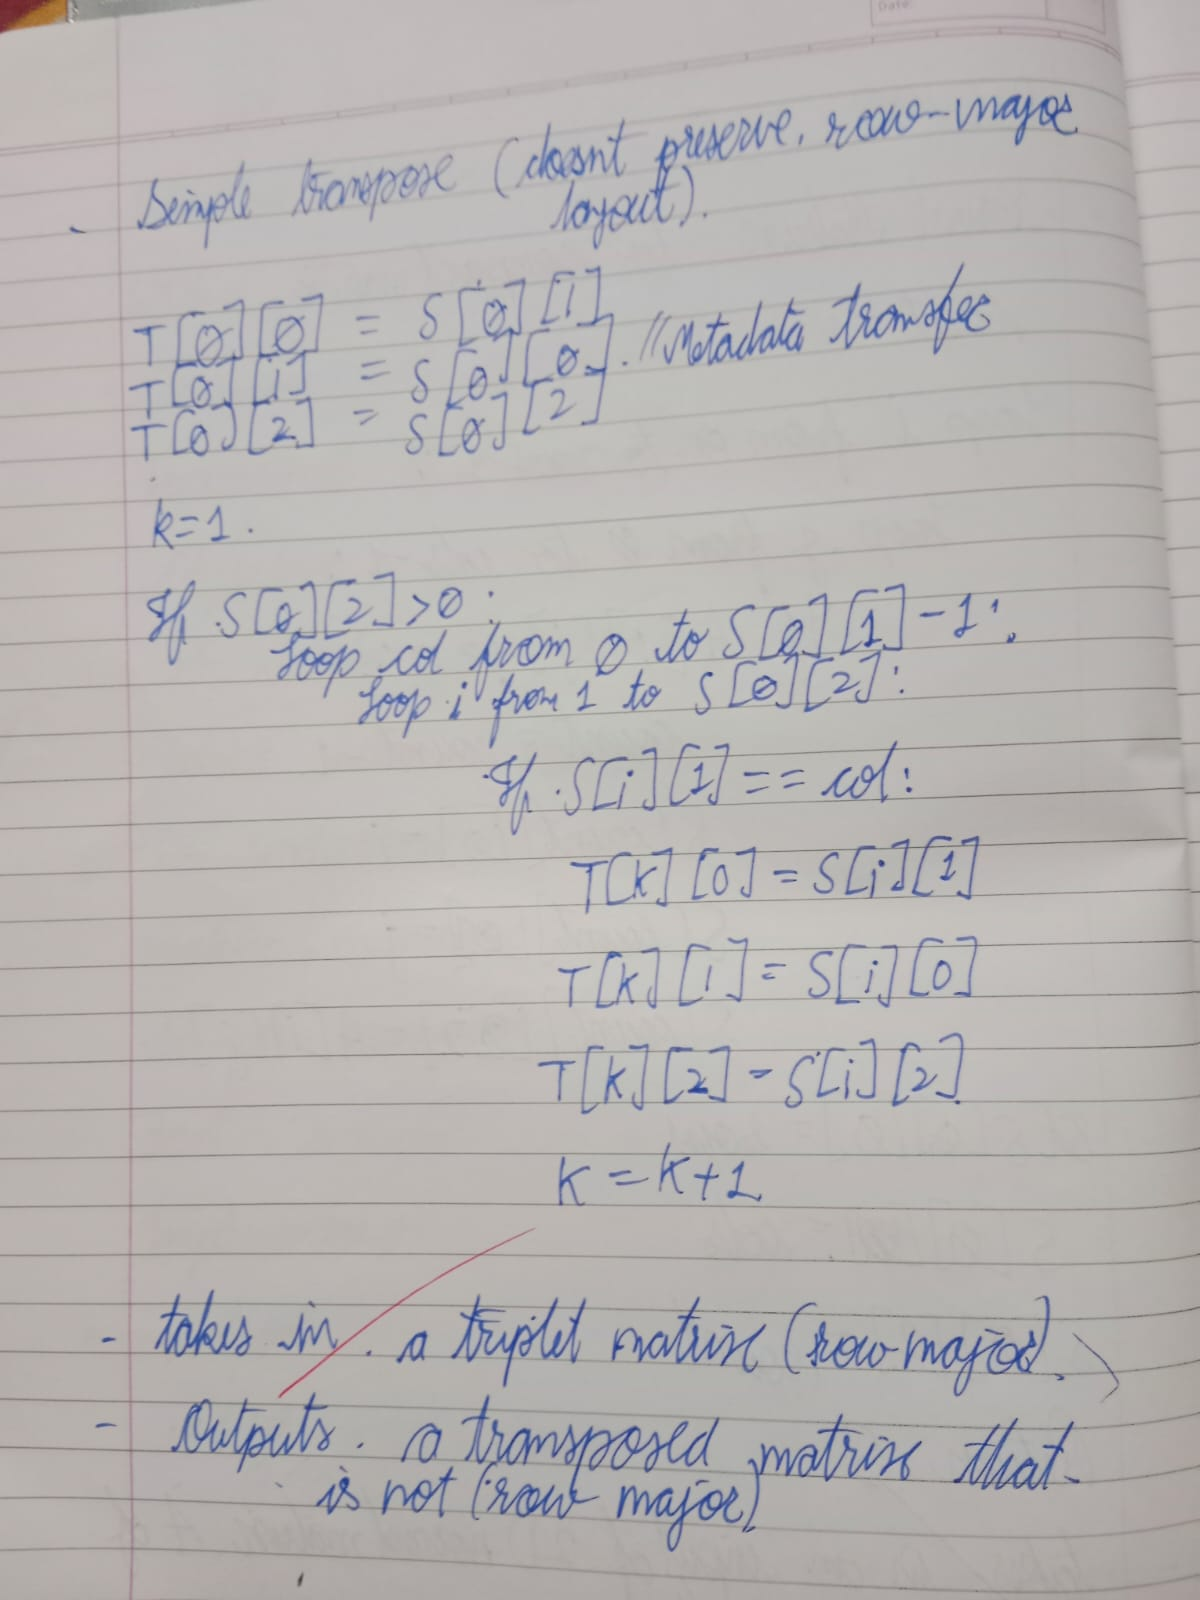 Date:
- Simple transpose (doesnt preserve. row-major
layout).
T[0][0] = S[0][1]
T[0][1] = S[0][0]. //Metadata transfer
T[0][2] = S[0][2]
k=1.
If S[0][2]>0:
loop col from 0 to S[0][1]-1:
loop i from 1 to S[0][2]:
If S[i][1] == col:
T[k][0] = S[i][1]
T[k][1] = S[i][0]
T[k][2] = S[i][2]
K = K+1
- takes in. a triplet matrix (row major).
- Outputs. a transposed matrix that
is not (row major)